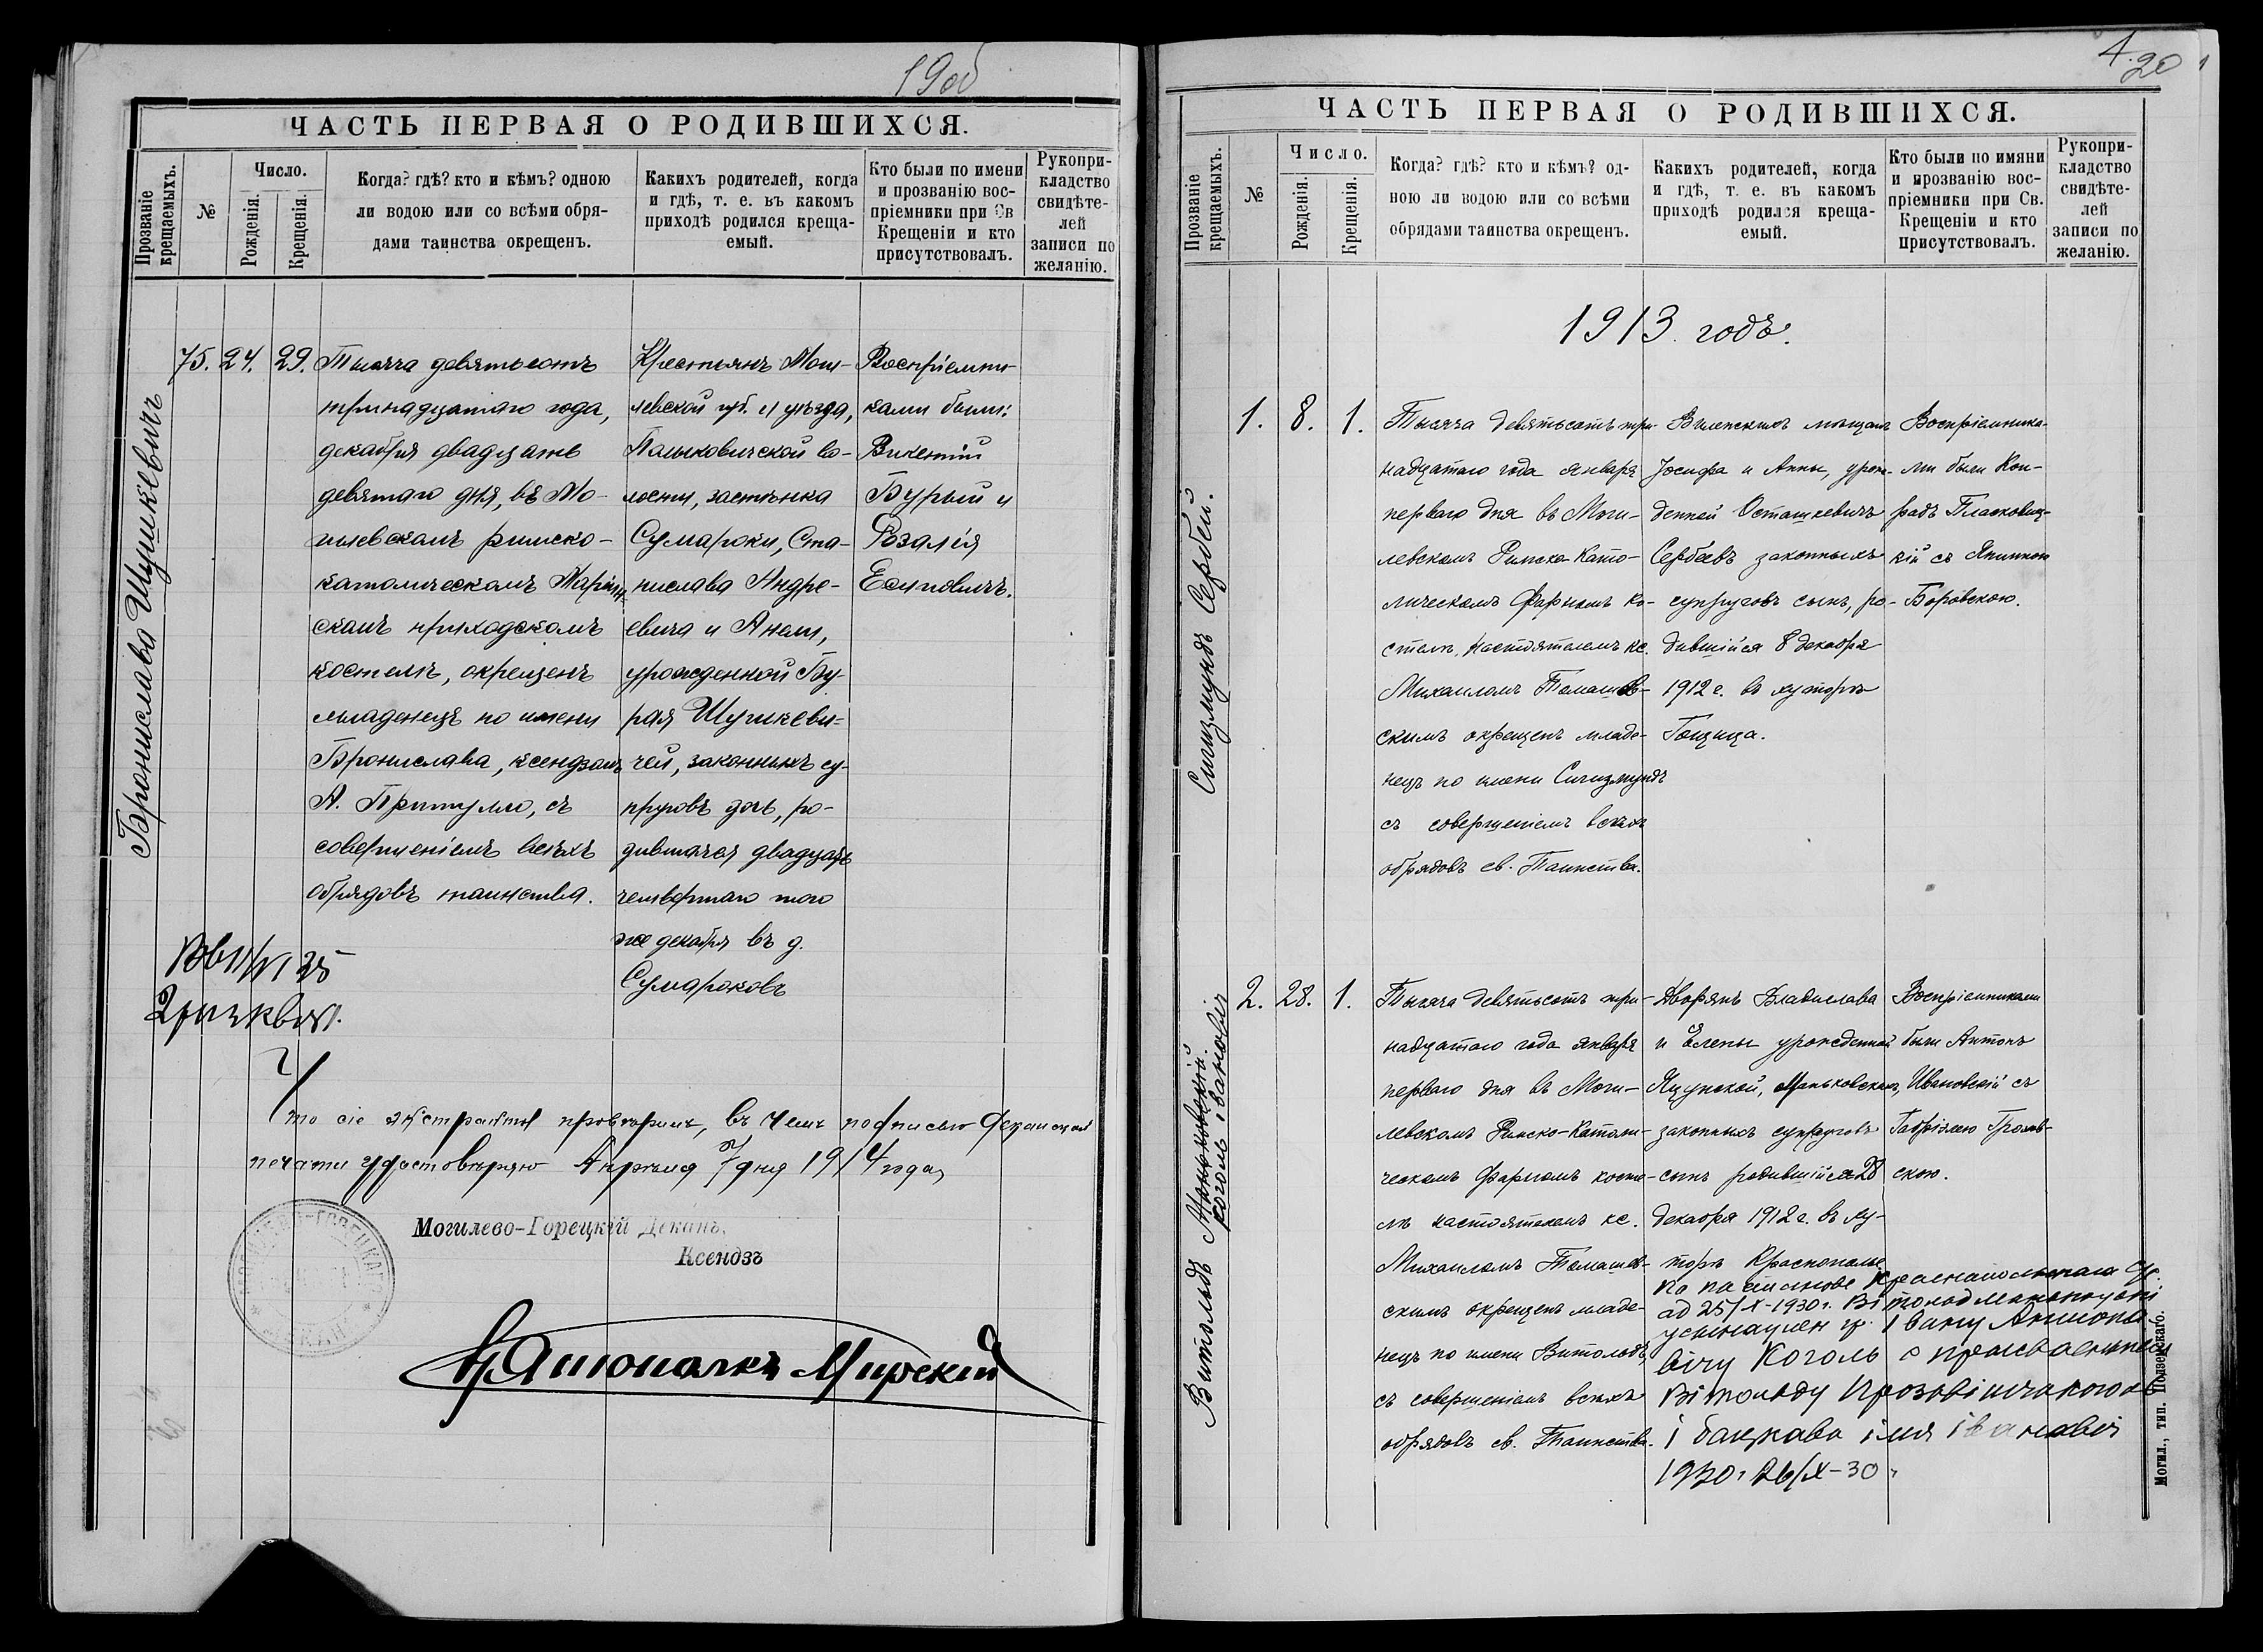 19об
ЧАСТЬ ПЕРВАЯ О РОДИВШИХСЯ.
Прозваніе крещаемыхъ.
№
Число.
Рожденія.
Крещенія.
Когда? гдѣ? кто и кѣмъ? одною
ли водою или со всѣми обря-
дами таинства окрещенъ.
Какихъ родителей, когда
и гдѣ, т. е. въ какомъ
приходѣ родился креща-
емый.
Кто были по имени
и прозванію вос-
пріемники при Св
Крещеніи и кто
присутствовалъ.
Рукопри-
кладство
свидѣте-
лей
записи по
желанію.
Бронислава Шушкевичъ
75. 24. 29.
Тысяча девятьсотъ
тринадцатаго года,
декабря двадцать
девятаго дня, въ Мо-
гилевскомъ римско-
католическомъ Маріин-
скомъ приходскомъ
костелѣ, окрещенъ
младенецъ по имени
Бронислава, ксендзомъ
А. Притулло, съ
совершеніемъ всѣхъ
обрядовъ таинства.
Крестьянъ Моги-
левской губ. и уѣзда,
Полыковичской во-
лости, застѣнка
Сумароки, Ста-
нислава Андре-
евича и Анели,
урожденной Бу-
рая Шушкеви-
чей, законныхъ су-
пруговъ дочь, ро-
дившаяся двадцать
четвертаго того
же декабря въ д.
Сумароковъ
Воспріемни-
ками были:
Викентій
Бурый и
Розалія
Есиповичъ.
Что сіе экстрактъ провѣрилъ, въ чемъ подписью
печати удостовѣряю Апрѣля 7 дня 1914 года
Могилево-Горецкій Деканъ,
Ксендзъ
Мирскій
4.20
ЧАСТЬ ПЕРВАЯ О РОДИВШИХСЯ.
Прозваніе крещаемыхъ.
№
Число.
Рожденія.
Крещенія.
Когда? гдѣ? кто и кѣмъ? од-
ною ли водою или со всѣми
обрядами таинства окрещенъ.
Какихъ родителей, когда
и гдѣ, т. е. въ какомъ
приходѣ родился креща-
емый.
Кто были по имяни
и прозванію вос-
пріемники при Св.
Крещеніи и кто
присутствовалъ.
Рукопри-
кладство
свидѣте-
лей
записи по
желанію.
1913 годъ.
Сигизмундъ Сербей.
1. 8. 1.
Тысяча девятьсотъ три-
надцатаго года января
перваго дня въ Моги-
левскомъ Римско-Като-
лическомъ Фарномъ ко-
стелѣ, настоятелемъ кс.
Михаиломъ Томашев-
скимъ окрещенъ младе-
нецъ по имени Сигизмундъ
съ совершеніемъ всѣхъ
обрядовъ св. Таинства.
Виленскихъ мѣщанъ
Іосифа и Анны, урож-
денной Осташкевичъ
Сербеевъ законныхъ
супруговъ сынъ, ро-
дившійся 8 декабря
1912 г. въ хуторѣ
Гощица.
Воспріемника-
ми были Кон-
радъ Пласковиц-
кій съ Яниною
Боровскою.
Витольдъ Маньковскій.
Коголь Івановіч
2. 28. 1.
Тысяча девятьсотъ три-
надцатаго года января
перваго дня въ Моги-
левскомъ Римско-Католи-
ческомъ фарномъ косте-
лѣ настоятелемъ кс.
Михаиломъ Томашев-
скимъ окрещенъ младе-
нецъ по имени Витольдъ,
съ совершеніемъ всѣхъ
обрядовъ св. Таинства.
Дворянъ Владислава
и Елены урожденной
Яцунской, Маньковскихъ,
законныхъ супруговъ
сынъ родившійся 28
декабря 1912 г. въ ху-
торѣ Краснополье
Воспріемниками
были Антонъ
Ивановскій съ
Габріэлею Громов-
скою.
ад 25/X-1930 г.
Івану Антона-
вічу Коголь с
Вітольду
і бацькава імя Іванавіч
1930 г. 26/X-30 г.
Могил., тип. Подземскаго.